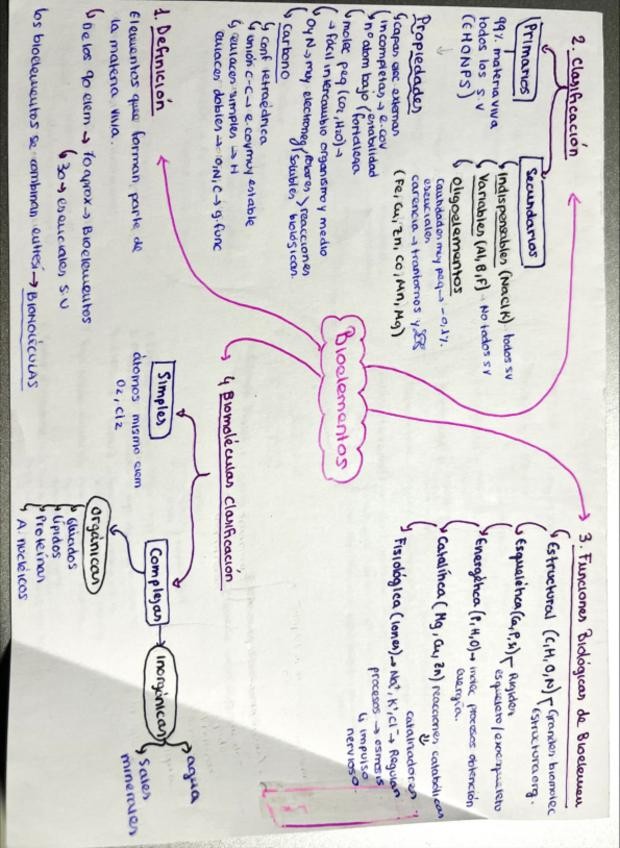 Bioelementos
1. Definición
Elementos que forman parte de
la materia viva.
De los 90 elem → 70 aprox → Bioelementos
30 → esenciales S.V
los bioelementos se combinan entresí → BIOMOLÉCULAS
2. Clasificación
Primarios
99% materia viva
todos los s.v
(CHONPS)
Propiedades
capas elec externas
incompletas → e-cov
nº atom bajo (estabilidad
fortaleza
molec peq (CO2, H2O) →
→ fácil intercambio organismo y medio
O y N → muy electroneg
reacciones
solubles biológicas.
Carbono
conf tetraédrica
unión C-C → e.cov muy estable
enlaces simples → H
enlaces dobles → O, N, C → g. func
Secundarios
Indispensables (NaClK) todos sv
Variables (Al, B, F) No todos sv
Oligoelementos
cantidades muy peq → -0,1%.
esenciales
carencia → trantornos y
(Fe, Cu, Zn, Co, Mn, Mg)
3. Funciones Biológicas de Bioelemen
Estructural (C, H, O, N) Grandes biomolec
Estructura org.
Esquelética (Ca, P, Regulan
esqueleto/exoesqueleto
Energética (P, H, O) → molec procesos obtención
energía.
Catalítica (Mg, Cu, Zn) reacciones catabólicas
catalizadores
Fisiológica (Iones) → Na⁺, K⁺, Cl⁻ → Regulan
procesos → osmosis
impulso
nervioso.
4 Biomoléculas clasificación
Simples
átomos mismo elem
O2, Cl2
Complejas
Orgánicas
Glúcidos
Lípidos
Proteinas
A. nucléicos
inorgánicas
agua
Sales
minerales